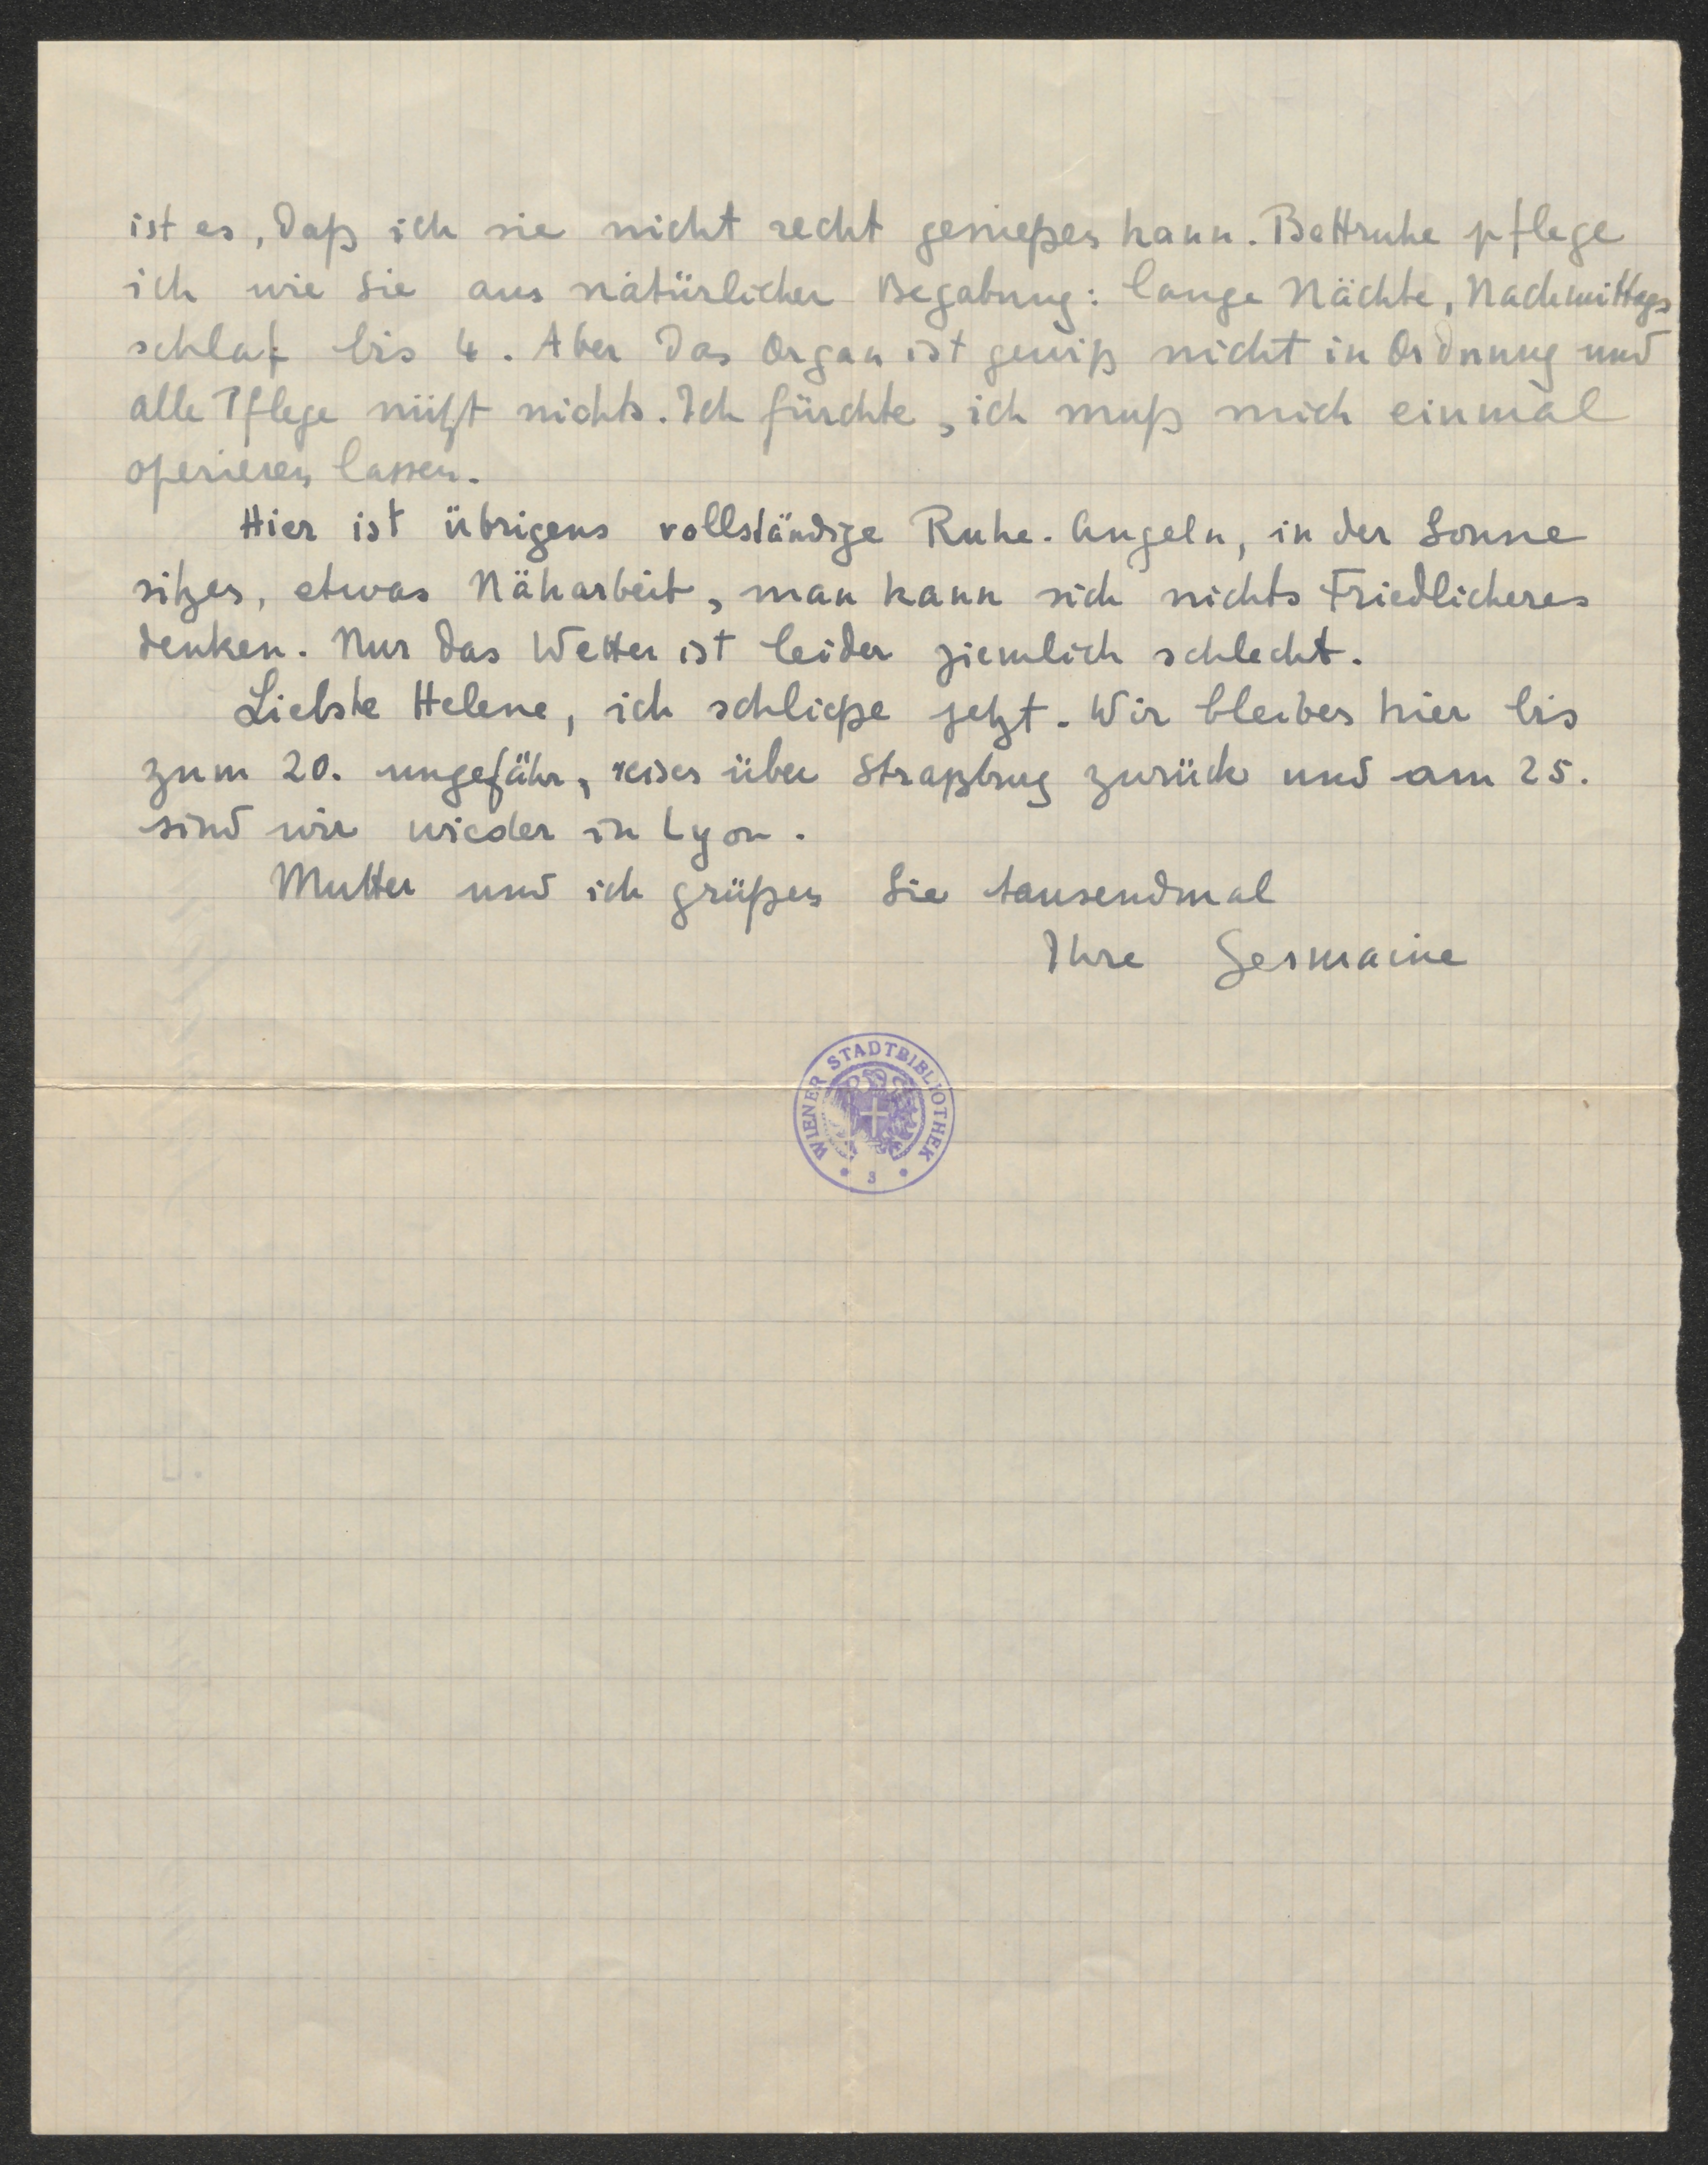 ist es, daß ich sie nicht recht genießen kann. Bettruhe pflege
ich wie Sie aus natürlicher Begabung: lange Nächte, Nachmittags
schlaf bis 4. Aber das Organ ist gewiß nicht in Ordnung und
alle Pflege nützt nichts. Ich fürchte, ich muß mich einmal
operieren lassen.
Hier ist übrigens vollständige Ruhe. Angeln, in der Sonne
sitzen, etwas Näharbeit, man kann sich nichts Friedlicheres
denken. Nur das Wetter ist leider ziemlich schlecht.
Liebste Helene, ich schließe jetzt. Wir bleiben hier bis
zum 20. ungefähr, reisen über Straßburg zurück und am 25.
sind wir wieder in Lyon.
Mutter und ich grüßen Sie tausendmal
Ihre Germaine
WIENER STADTBIBLIOTHEK
3